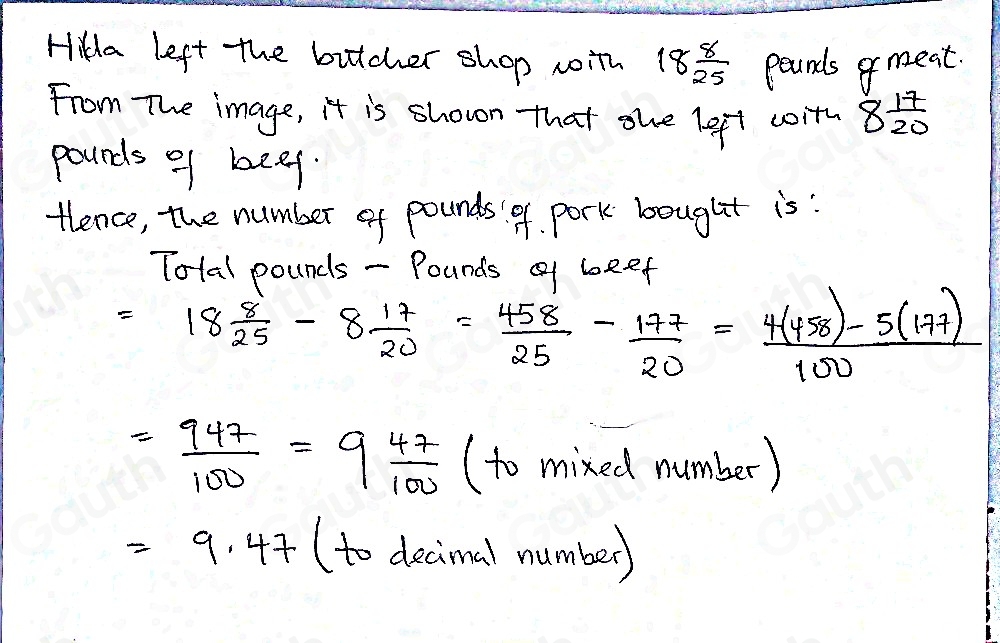 Hilda left the butcher shop with 18 8/25 pounds of meat.
From the image, it is shown that she left with 8 17/20
pounds of beef.
Hence, the number of pounds of pork bought is:
Total pounds - Pounds of beef
= 18 8/25 - 8 17/20 = 458/25 - 177/20 = 4(458) - 5(177)/100
= 947/100 = 9 47/100 (to mixed number)
= 9.47 (to decimal number)